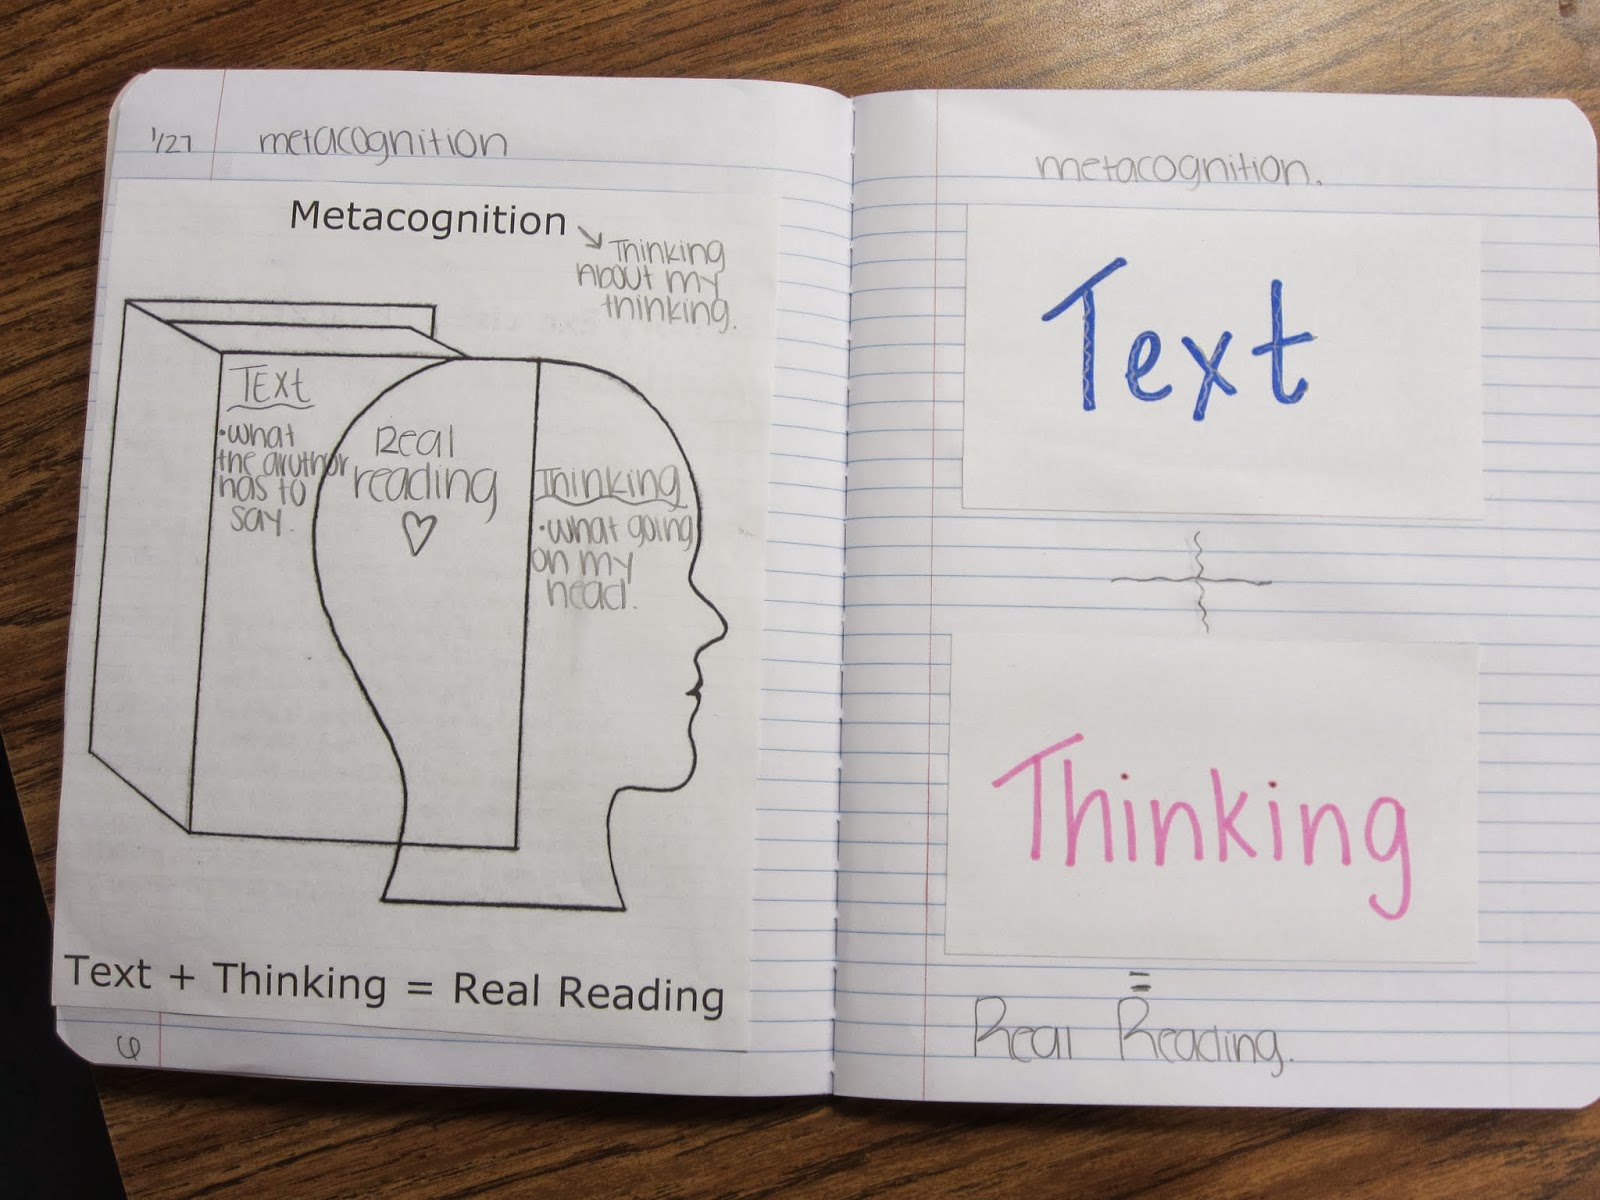 1/27 metacognition
Metacognition
Thinking
About my
thinking.
Text
•what
the aruthor
has to
say.
Real
reading
Thinking
•what going
on my
head.
Text + Thinking = Real Reading
6
metacognition.
Text
+
Thinking
=
Real Reading.